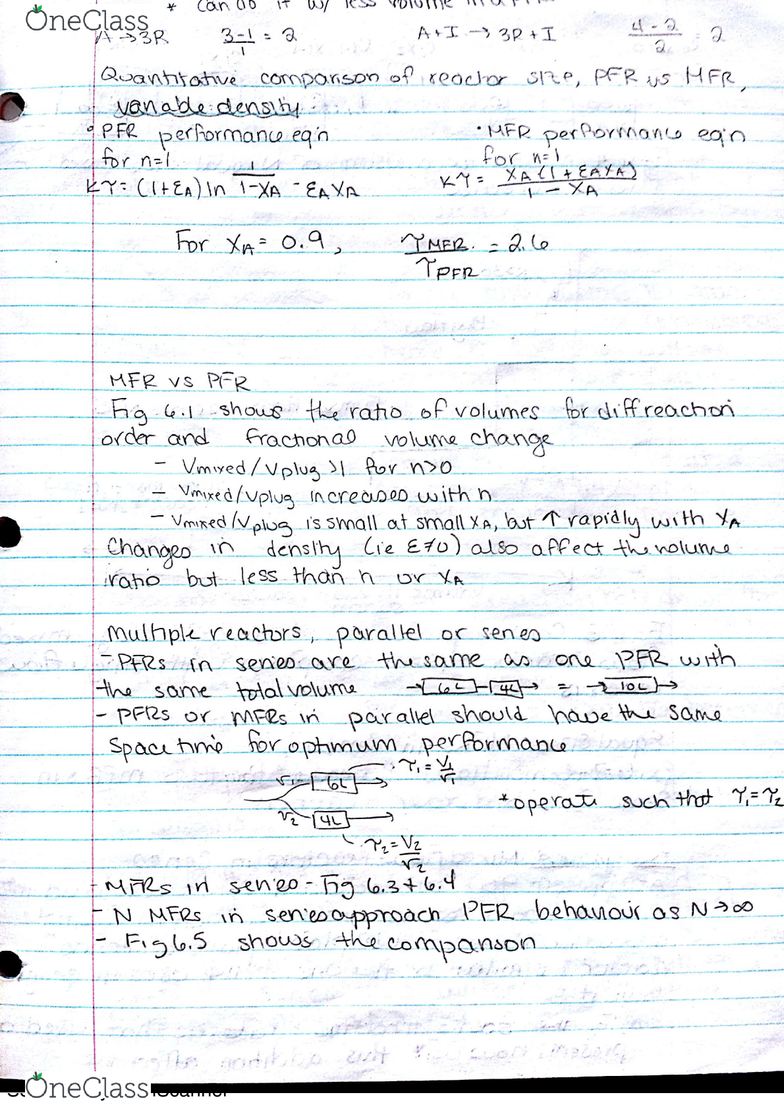 * Can do it w/ less volume in a
OneClass
A → 3R    3-1/1 = 2    A+I → 3R+I    4-2/2 = 2
Quantitative comparison of reactor size, PFR vs MFR,
variable density:
• PFR performance eq'n    • MFR performance eq'n
for n=1    for n=1
kτ = (1+εA) ln 1/1-XA - εAXA    kτ = XA(1+εAXA)/1-XA
For XA = 0.9,    τMFR/τPFR = 2.6
MFR vs PFR
Fig 6.1 shows the ratio of volumes for diff reaction
order and fractional volume change
- Vmixed/Vplug >1 for n>0
- Vmixed/Vplug increases with n
- Vmixed/Vplug is small at small XA, but ↑ rapidly with XA
Changes in density (ie ε≠0) also affect the volume
ratio but less than n or XA
Multiple reactors, parallel or series
- PFRs in series are the same as one PFR with
the same total volume → 6L - 4L → = → 10L →
- PFRs or MFRs in parallel should have the same
space time for optimum performance
τ1 = V1/v1
v1 6L
*operate such that τ1=τ2
v2 4L
τ2 = V2/v2
- MFRs in series - Fig 6.3 + 6.4
- N MFRs in series approach PFR behaviour as N→∞
- Fig 6.5 shows the comparison
OneClass